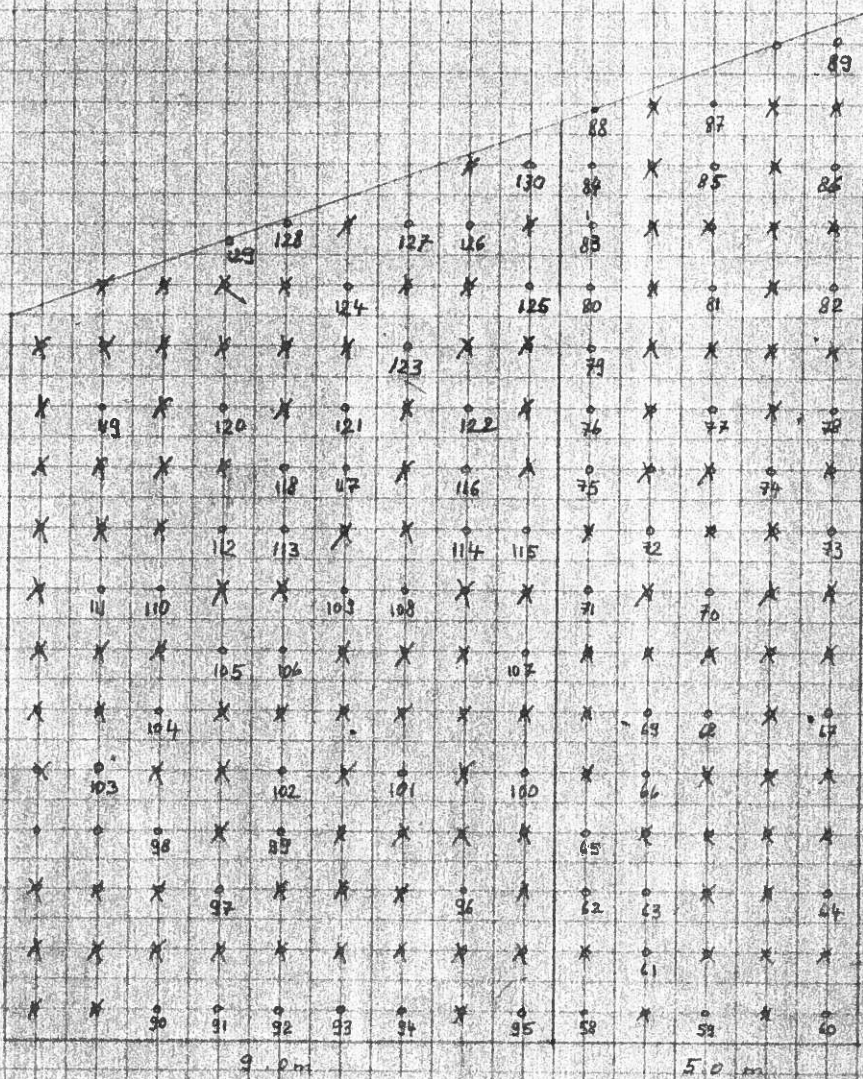 89
88 87
130 84 85 86
129 128 127 126 83
124 125 80 81 82
123 79
119 120 121 122 76 77 78
118 117 116 75 74
112 113 114 115 72 73
111 110 109 108 71 70
105 106 107
104 69 68 67
103 102 101 100 66
98 99 65
97 96 62 63 64
61
90 91 92 93 94 95 58 59 60
9.0m 5.0 m